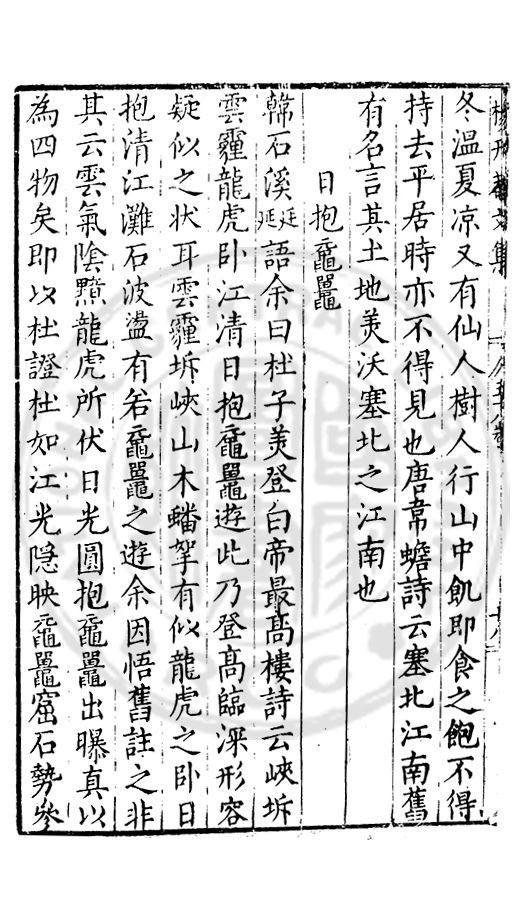 冬溫夏凉又有仙人樹人行山中飢即食之飽不得
持去平居時亦不得見也唐韋蟾詩云塞北江南舊
有名言其土地羙沃塞北之江南也
日抱黿鼉
韓石溪廷延語余曰杜子羙登白帝最髙樓詩云峽坼
雲霾龍虎卧江清日抱黿鼉遊此乃登髙臨深形容
疑似之狀耳雲霾坼峽山木蟠拏有似龍虎之卧日
抱清江灘石波盪有若黿鼉之遊余因悟舊註之非
其云雲氣陰黲龍虎所伏日光圓抱黿鼉出曝真以
為四物矣即以杜證杜如江光隠映黿鼉窟石勢參